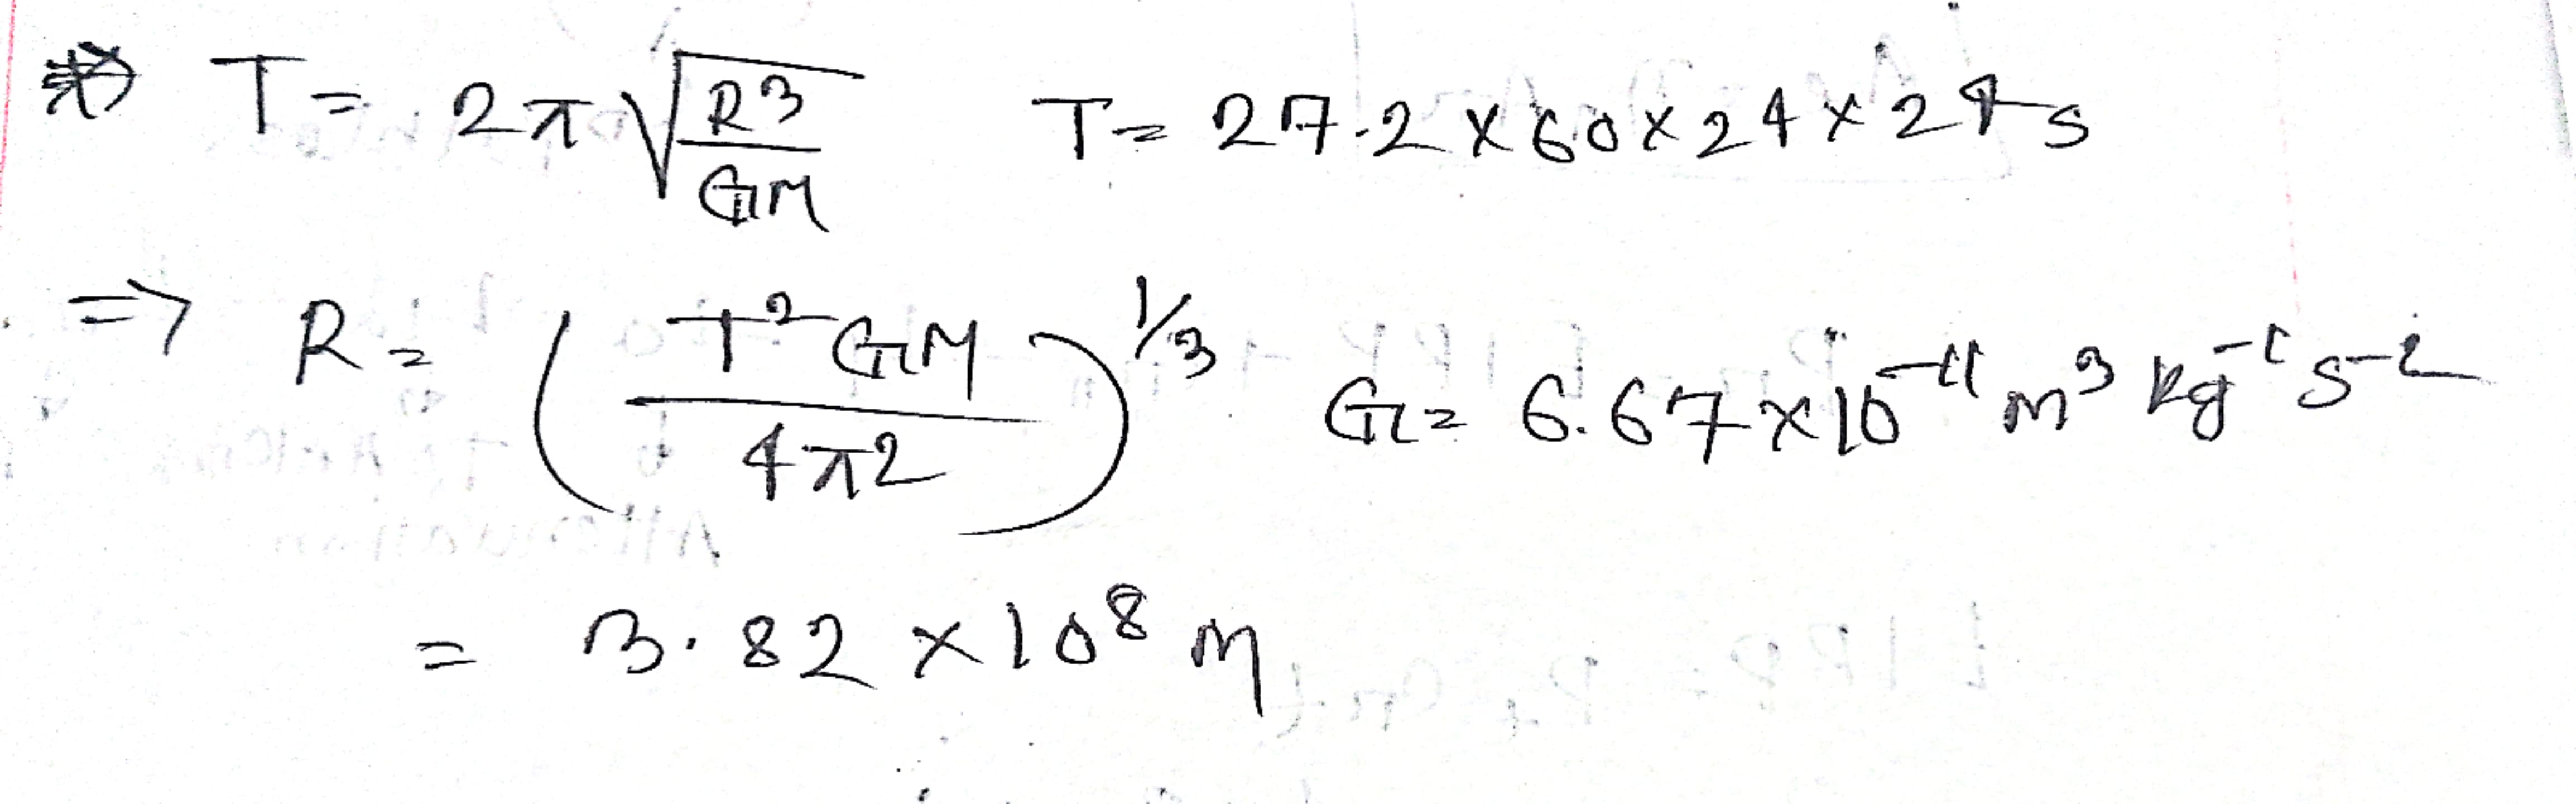 T = 2π√(R3/GM) T = 27.2 × 60 × 24 × 24 s
⇒ R = (T²GM/4π2)^1/3 G = 6.67 × 10⁻¹¹ m³ kg⁻¹ s⁻²
= 3.82 × 10⁸ m